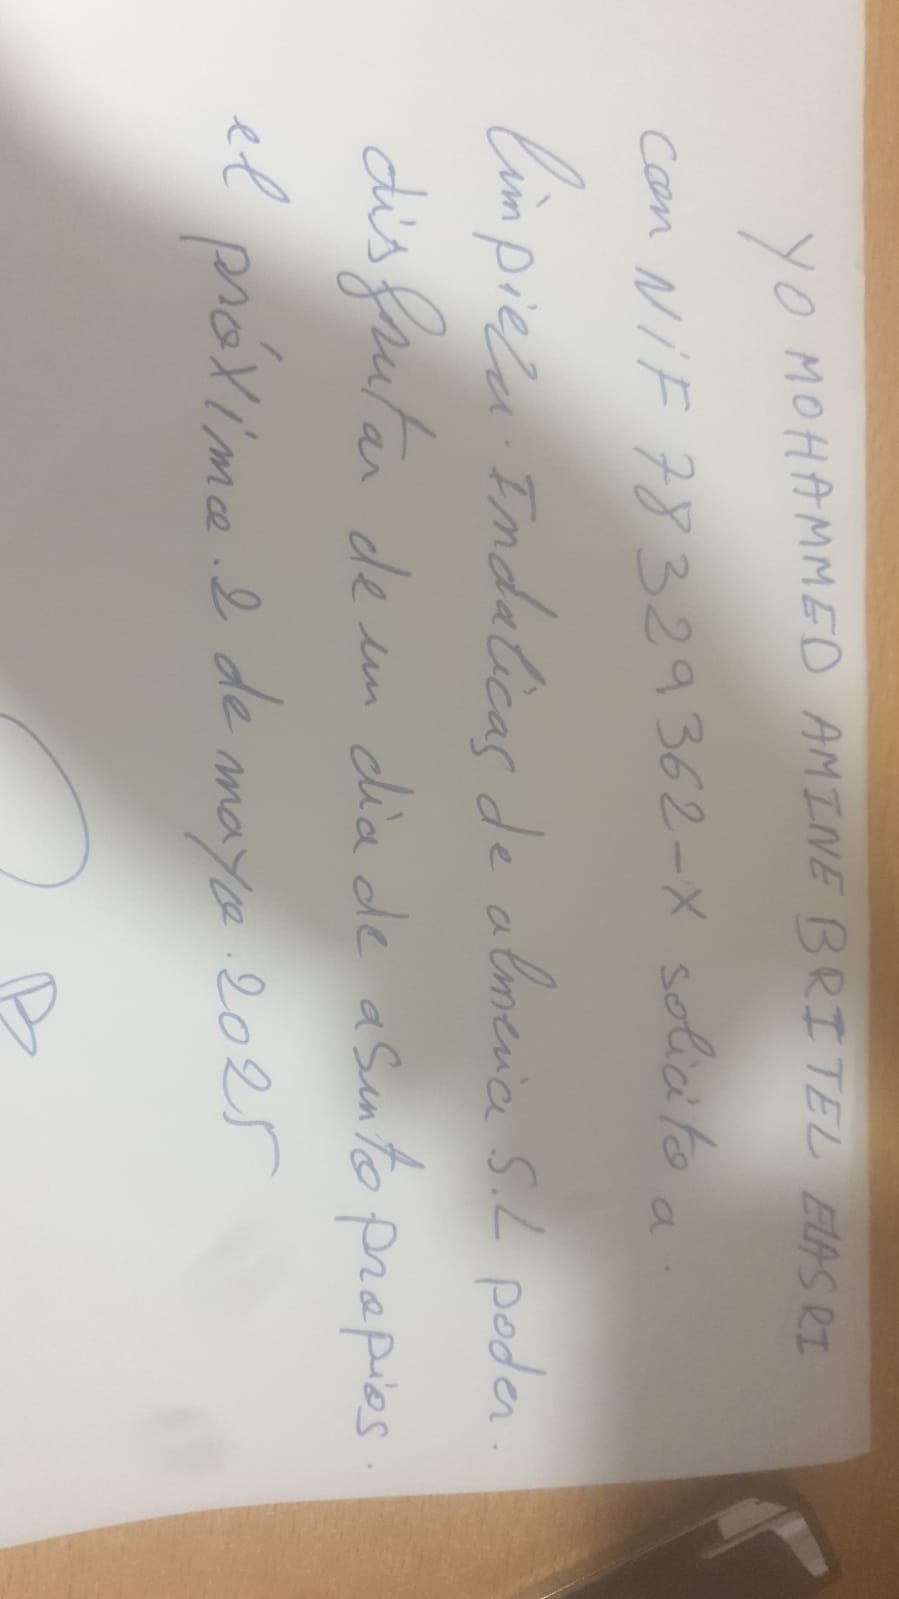 YO MOHAMMED AMINE BRITEL ELASRI
con NIF 78329362-X solicito a.
limpieza. Indalicas de almeria S.L poder.
disfrutar de un dia de asunto propios.
el próximo. 2 de mayo. 2025